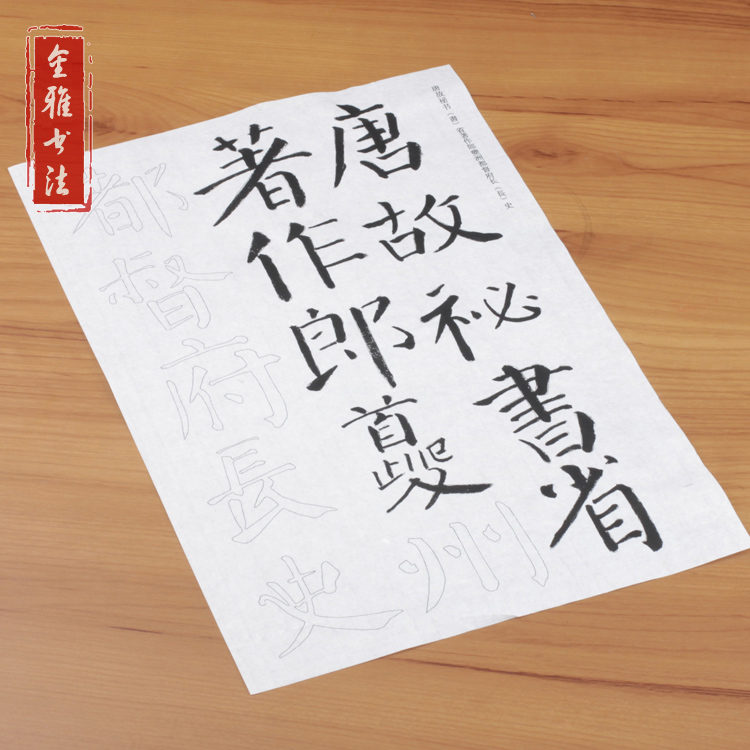 金雅书法
唐故秘书（書）省著作郎夔州都督府长（長）史
唐故祕書省
著作郎夔州
都督府長史